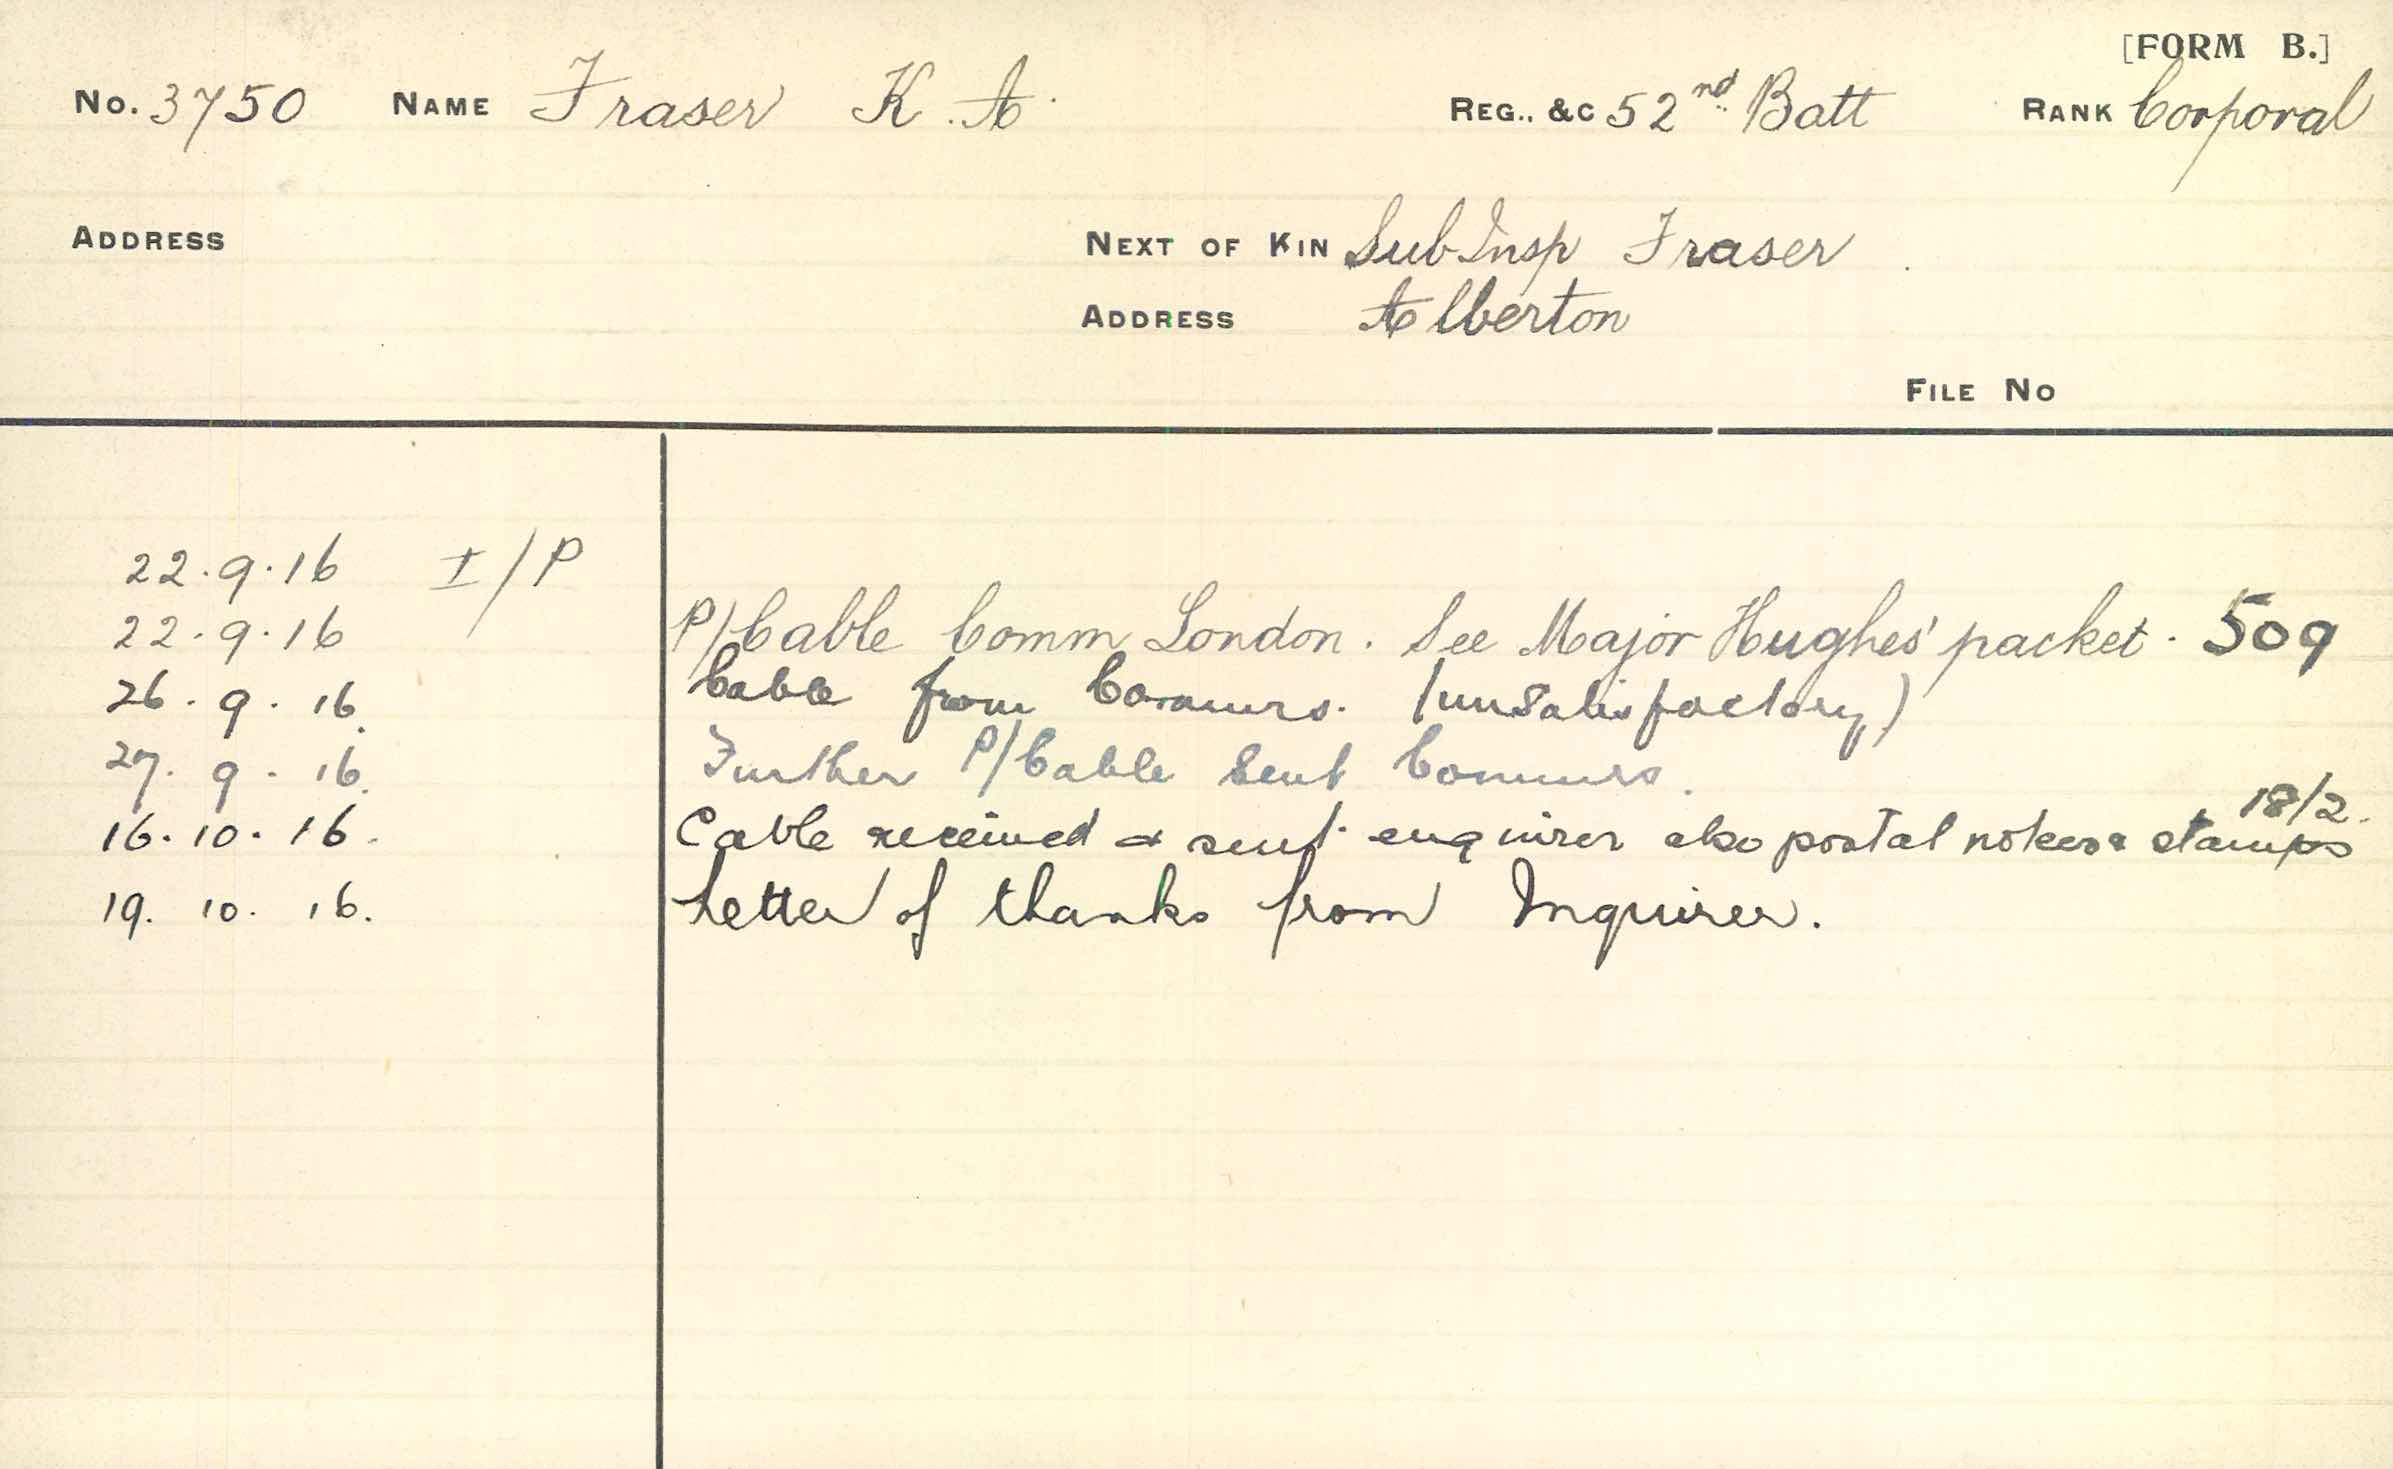 [FORM B.]
No. 3750 NAME Fraser K. A. REG., &C 52nd Batt RANK Corporal
ADDRESS NEXT OF KIN Sub Insp Fraser
ADDRESS Alberton
FILE No
22.9.16 I/P
22.9.16 P/Cable Comm London. See Major Hughes' packet. 509
26.9.16. Cable from Commrs. (unsatisfactory)
27.9.16. Further P/Cable sent Commrs.
18/2.
16.10.16. Cable received & sent enquirer also postal notes & stamps
19.10.16. Letter of thanks from Inquirer.